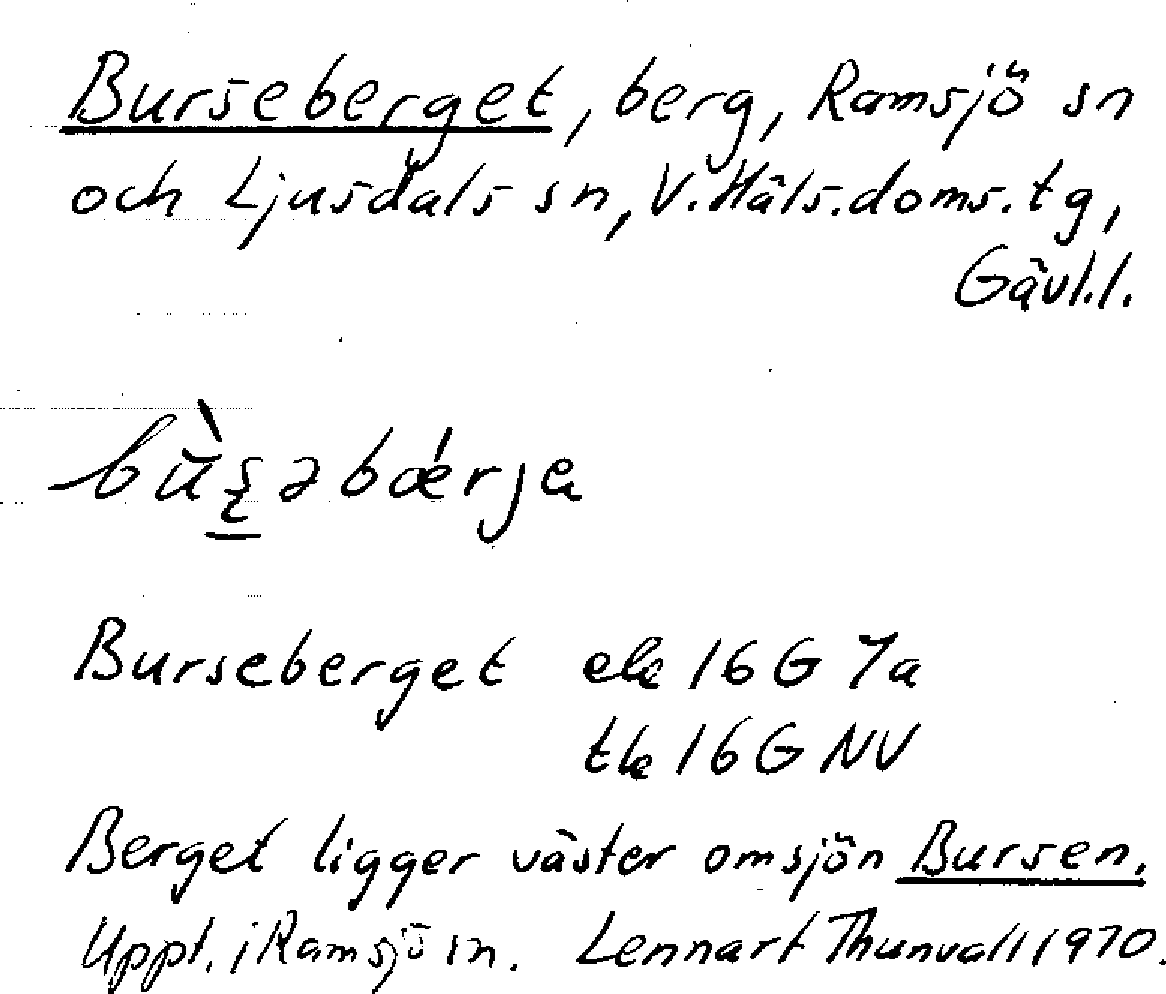 Burseberget, berg, Ramsjö sn
och Ljusdals sn, V. Häls. doms. tg,
Gävl. l.
bu̇̀ʂəbǽrjɐ
Burseberget ek 16 G 7a
tk 16 G NV
Berget ligger väster om sjön Bursen.
Uppt. i Ramsjö sn. Lennart Thunvall 1970.